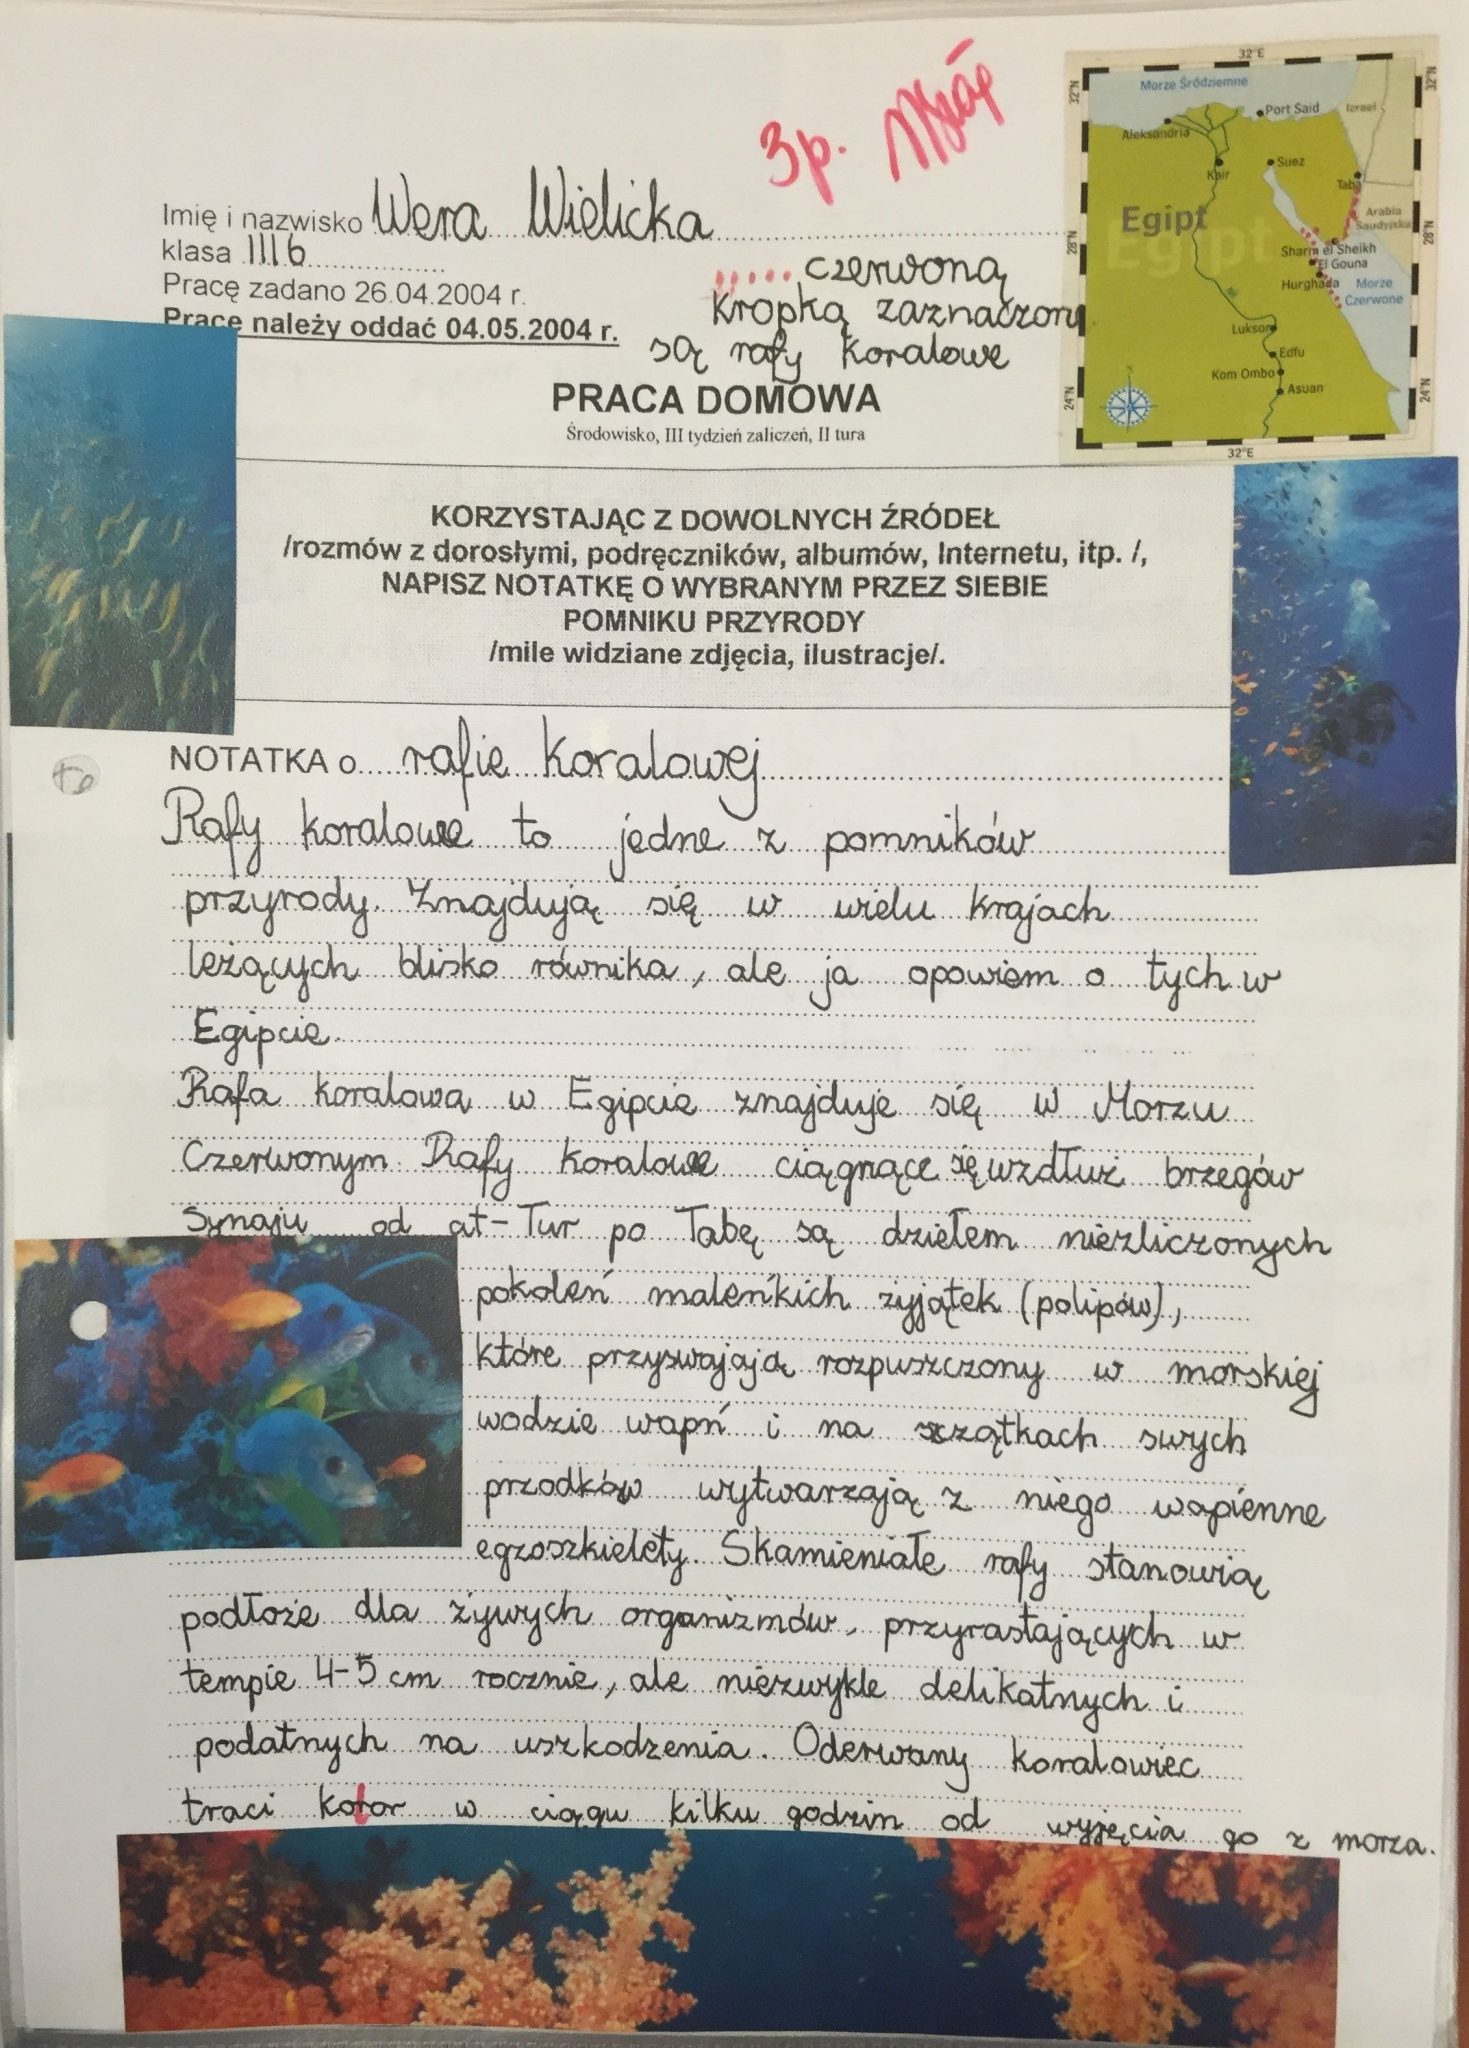 3p.
32°E
32°N
32°N
Morze Śródziemne
Aleksandria
Port Said
Izrael
Kair
Suez
Taba
Egipt
Egipt
Arabia
Saudyjska
28°N
28°N
Sharm el Sheikh
El Gouna
Hurghada
Morze
Czerwone
Luksor
Edfu
Kom Ombo
Asuan
24°N
24°N
32°E
Imię i nazwisko Wera Wielicka
klasa III b
Pracę zadano 26.04.2004 r.
Pracę należy oddać 04.05.2004 r.
czerwoną
kropką zaznaczone
są rafy koralowe
PRACA DOMOWA
Środowisko, III tydzień zaliczeń, II tura
KORZYSTAJĄC Z DOWOLNYCH ŹRÓDEŁ
/rozmów z dorosłymi, podręczników, albumów, Internetu, itp. /,
NAPISZ NOTATKĘ O WYBRANYM PRZEZ SIEBIE
POMNIKU PRZYRODY
/mile widziane zdjęcia, ilustracje/.
NOTATKA o rafie koralowej
Rafy koralowe to jedne z pomników
przyrody. Znajdują się w wielu krajach
leżących blisko równika, ale ja opowiem o tych w
Egipcie.
Rafa koralowa w Egipcie znajduje się w Morzu
Czerwonym. Rafy koralowe ciągnące się wzdłuż brzegów
Synaju od at-Tur po Tabę są dziełem niezliczonych
pokoleń maleńkich żyjątek (polipów),
które przyswajają rozpuszczony w morskiej
wodzie wapń i na szczątkach swych
przodków wytwarzają z niego wapienne
egzoszkielety. Skamieniałe rafy stanowią
podłoże dla żywych organizmów, przyrastających w
tempie 4-5 cm rocznie, ale niezwykle delikatnych i
podatnych na uszkodzenia. Oderwany koralowiec
traci kolor w ciągu kilku godzin od wyjęcia go z morza.